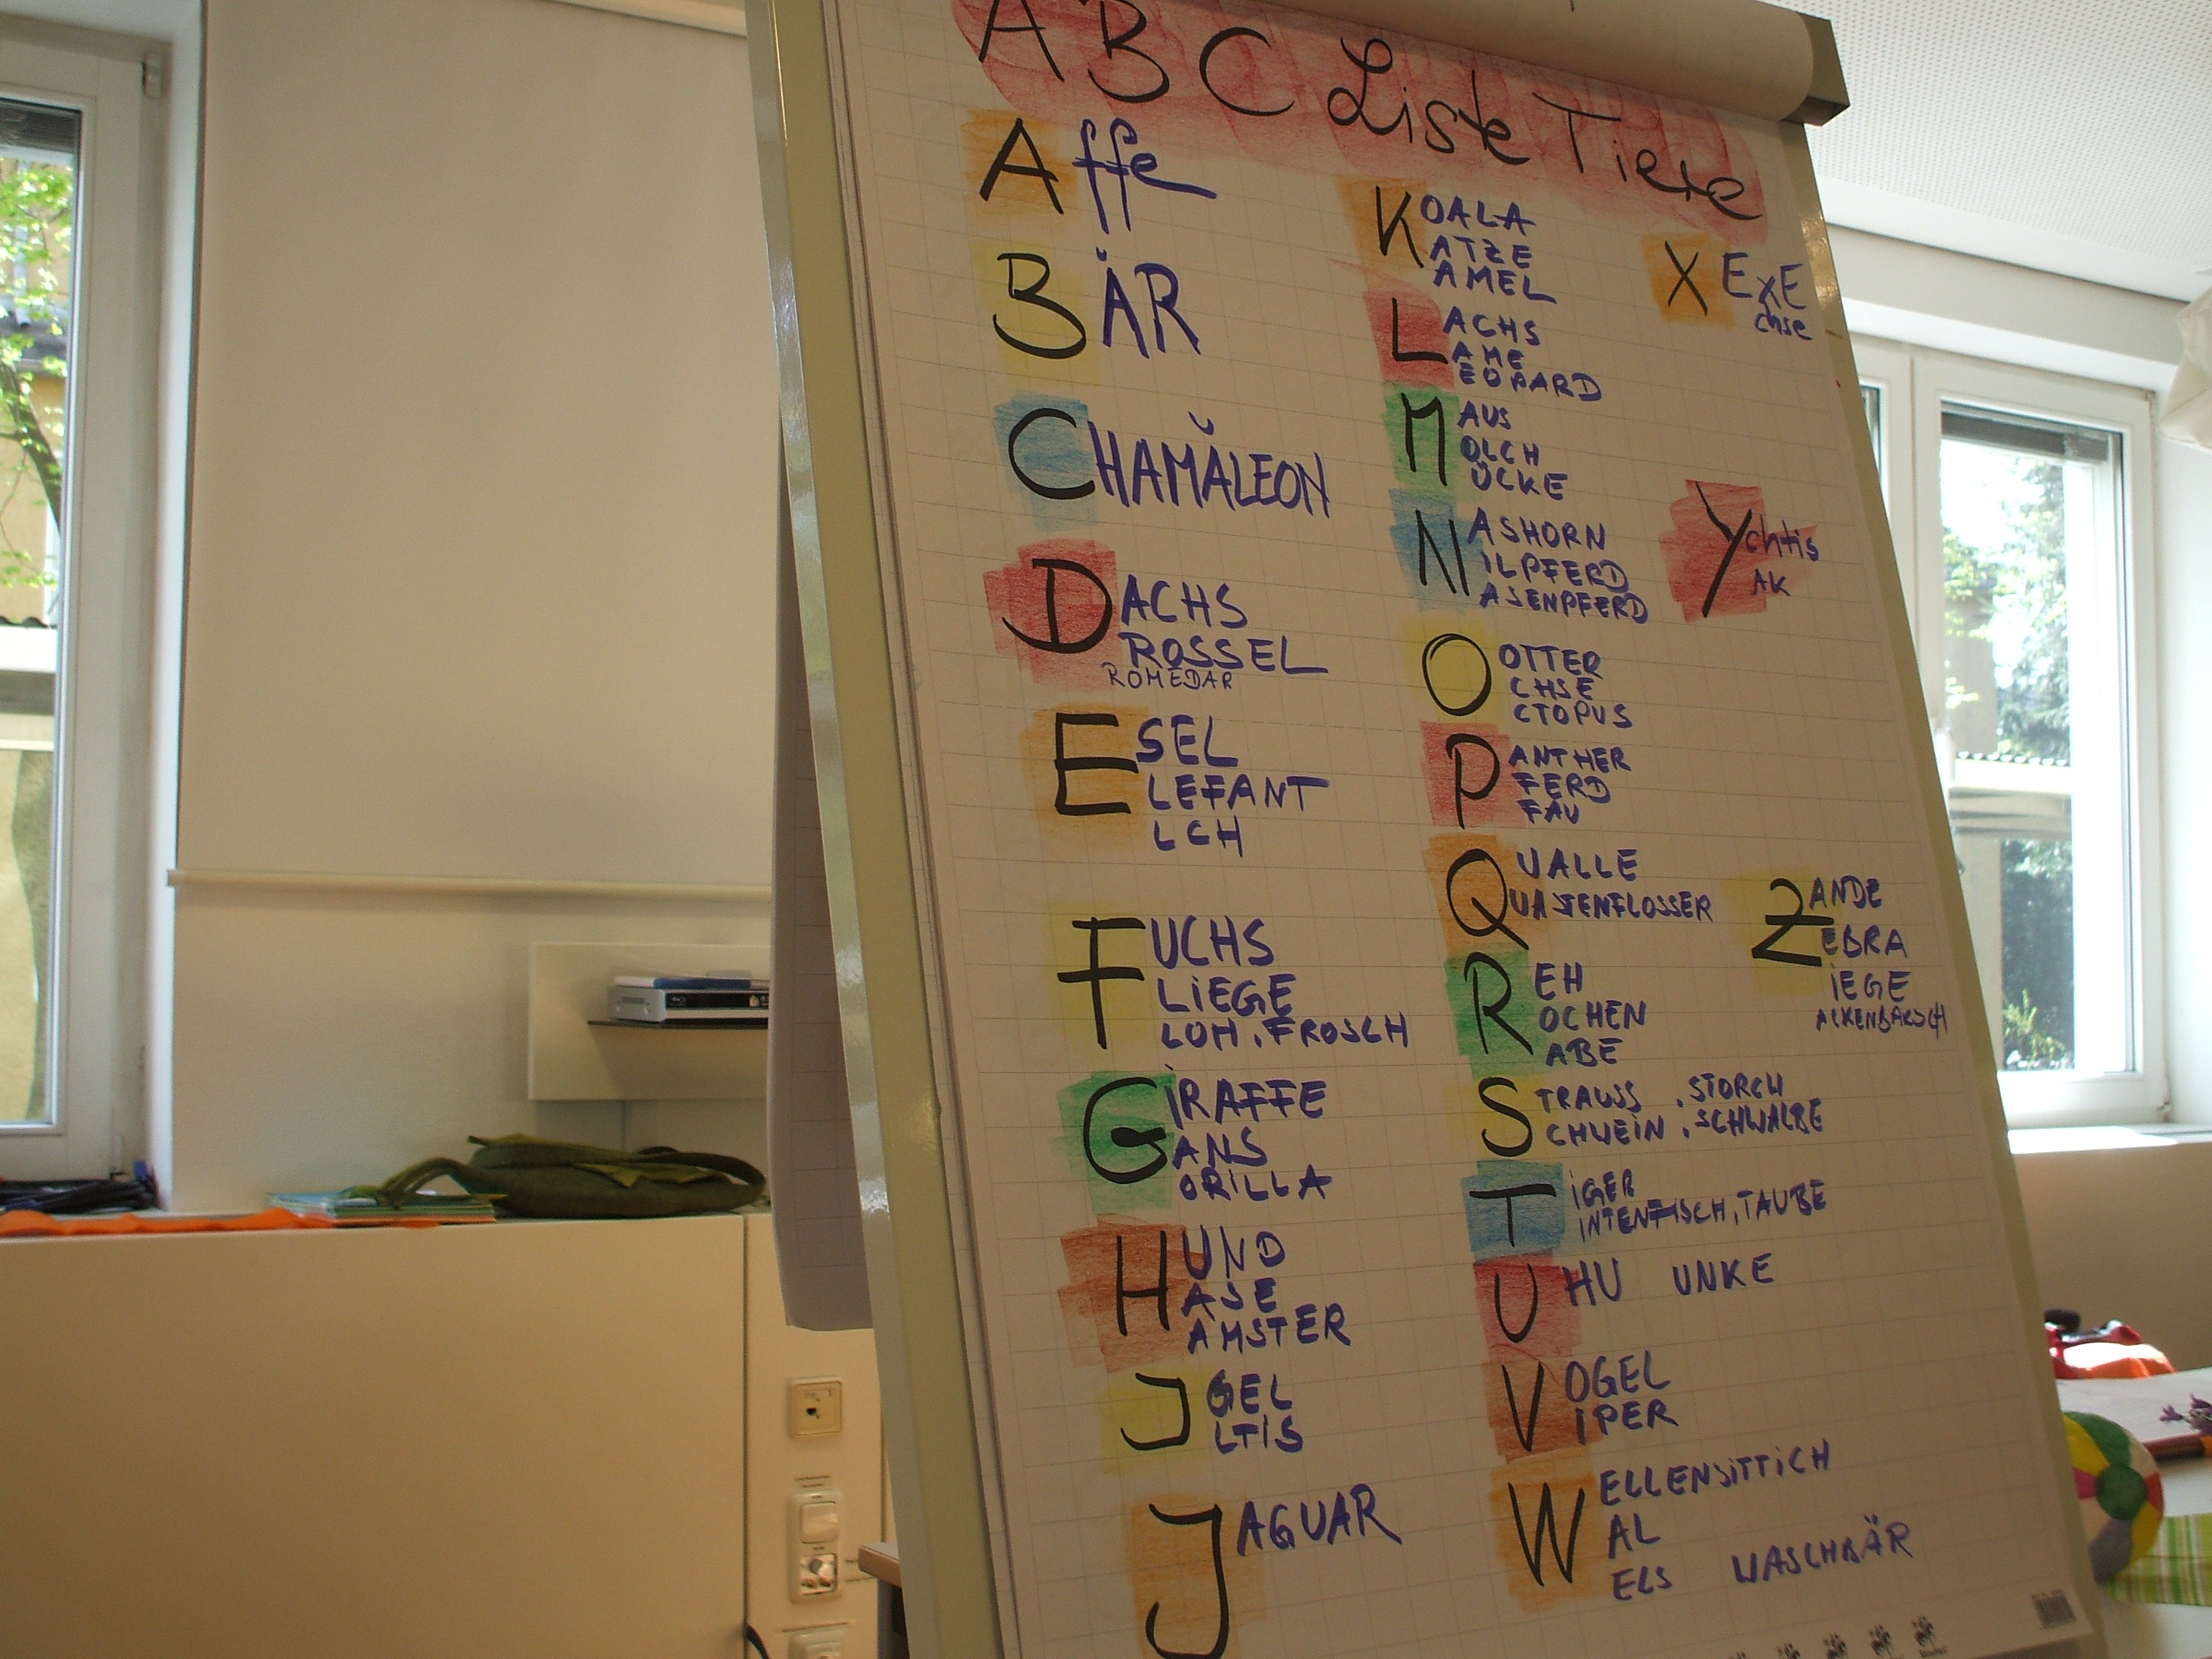 ABC Liste Tiere
Affe
BÄR
CHAMÄLEON
DACHS
ROSSEL
ROMEDAR
ESEL
LEFANT
LCH
FUCHS
LIEGE
LOH, FROSCH
GIRAFFE
ANS
ORILLA
HUND
ASE
AMSTER
IGEL
LTIS
JAGUAR
KOALA
ATZE
AMEL
LACHS
AME
EOPARD
MAUS
OLCH
ÜCKE
NASHORN
ILPFERD
ASENPFERD
O OTTER
CHSE
CTOPUS
PANTHER
FERD
FAU
QUALLE
QUASTENFLOSSER
REH
OCHEN
ABE
STRAUSS, STORCH
CHWEIN, SCHWALBE
TIGER
INTENFISCH, TAUBE
UHU UNKE
VOGEL
IPER
WELLENSITTICH
AL
ELS WASCHBÄR
X EXE
chse
Ychtis
AK
ZANDE
EBRA
IEGE
ACKENBARSCH